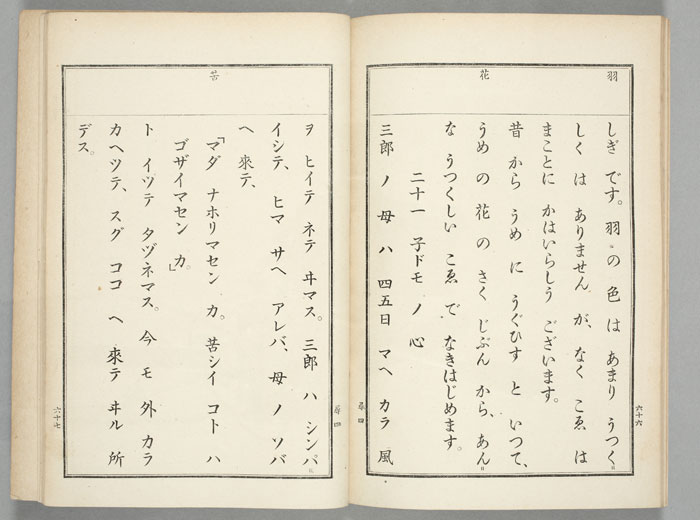 羽
花
しぎ です。羽 の 色 は あまり うつく
しく は ありません が、なく こゑ は
まことに かはいらしう ございます。
昔 から うめ に うぐひす と いつて、
うめ の 花 の さく じぶん から、あん
な うつくしい こゑ で なきはじめます。
二十一 子ドモ ノ 心
三郎 ノ 母 ハ 四五日 マヘ カラ 風
六十六
尋四
苦
ヲ ヒイテ ネテ ヰマス。三郎 ハ シンパ
イシテ、ヒマ サヘ アレバ、母 ノ ソバ
ヘ 來テ、
「マダ ナホリマセン カ。苦シイ コト ハ
ゴザイマセン カ。」
ト イツテ タヅネマス。今 モ 外 カラ
カヘツテ、スグ ココ ヘ 來テ ヰル 所
デス。
尋四
六十七